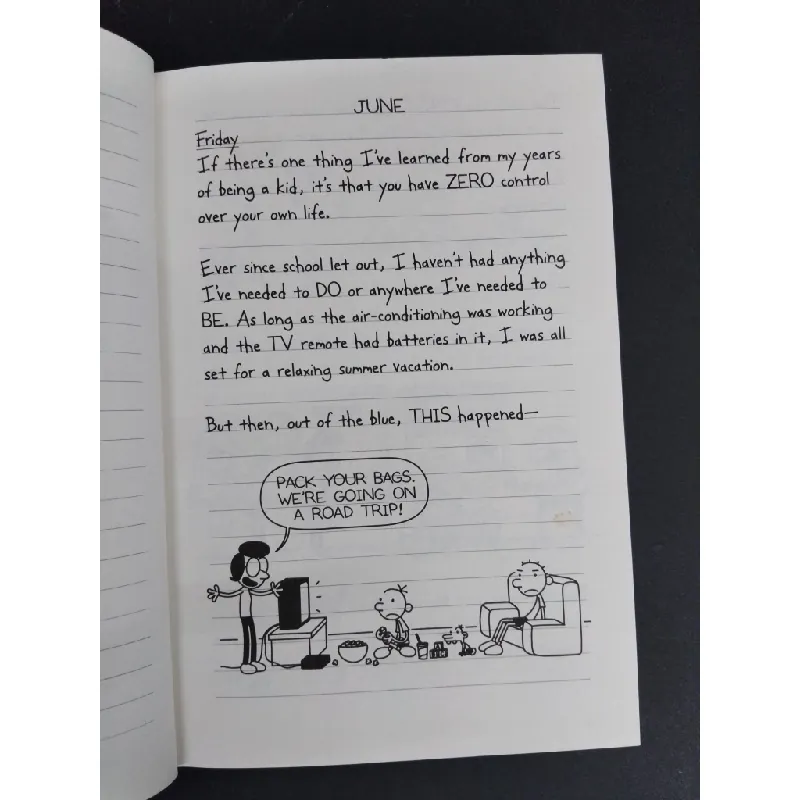 JUNE
Friday
If there's one thing I've learned from my years
of being a kid, it's that you have ZERO control
over your own life.
Ever since school let out, I haven't had anything
I've needed to DO or anywhere I've needed to
BE. As long as the air-conditioning was working
and the TV remote had batteries in it, I was all
set for a relaxing summer vacation.
But then, out of the blue, THIS happened—
PACK YOUR BAGS.
WE'RE GOING ON
A ROAD TRIP!